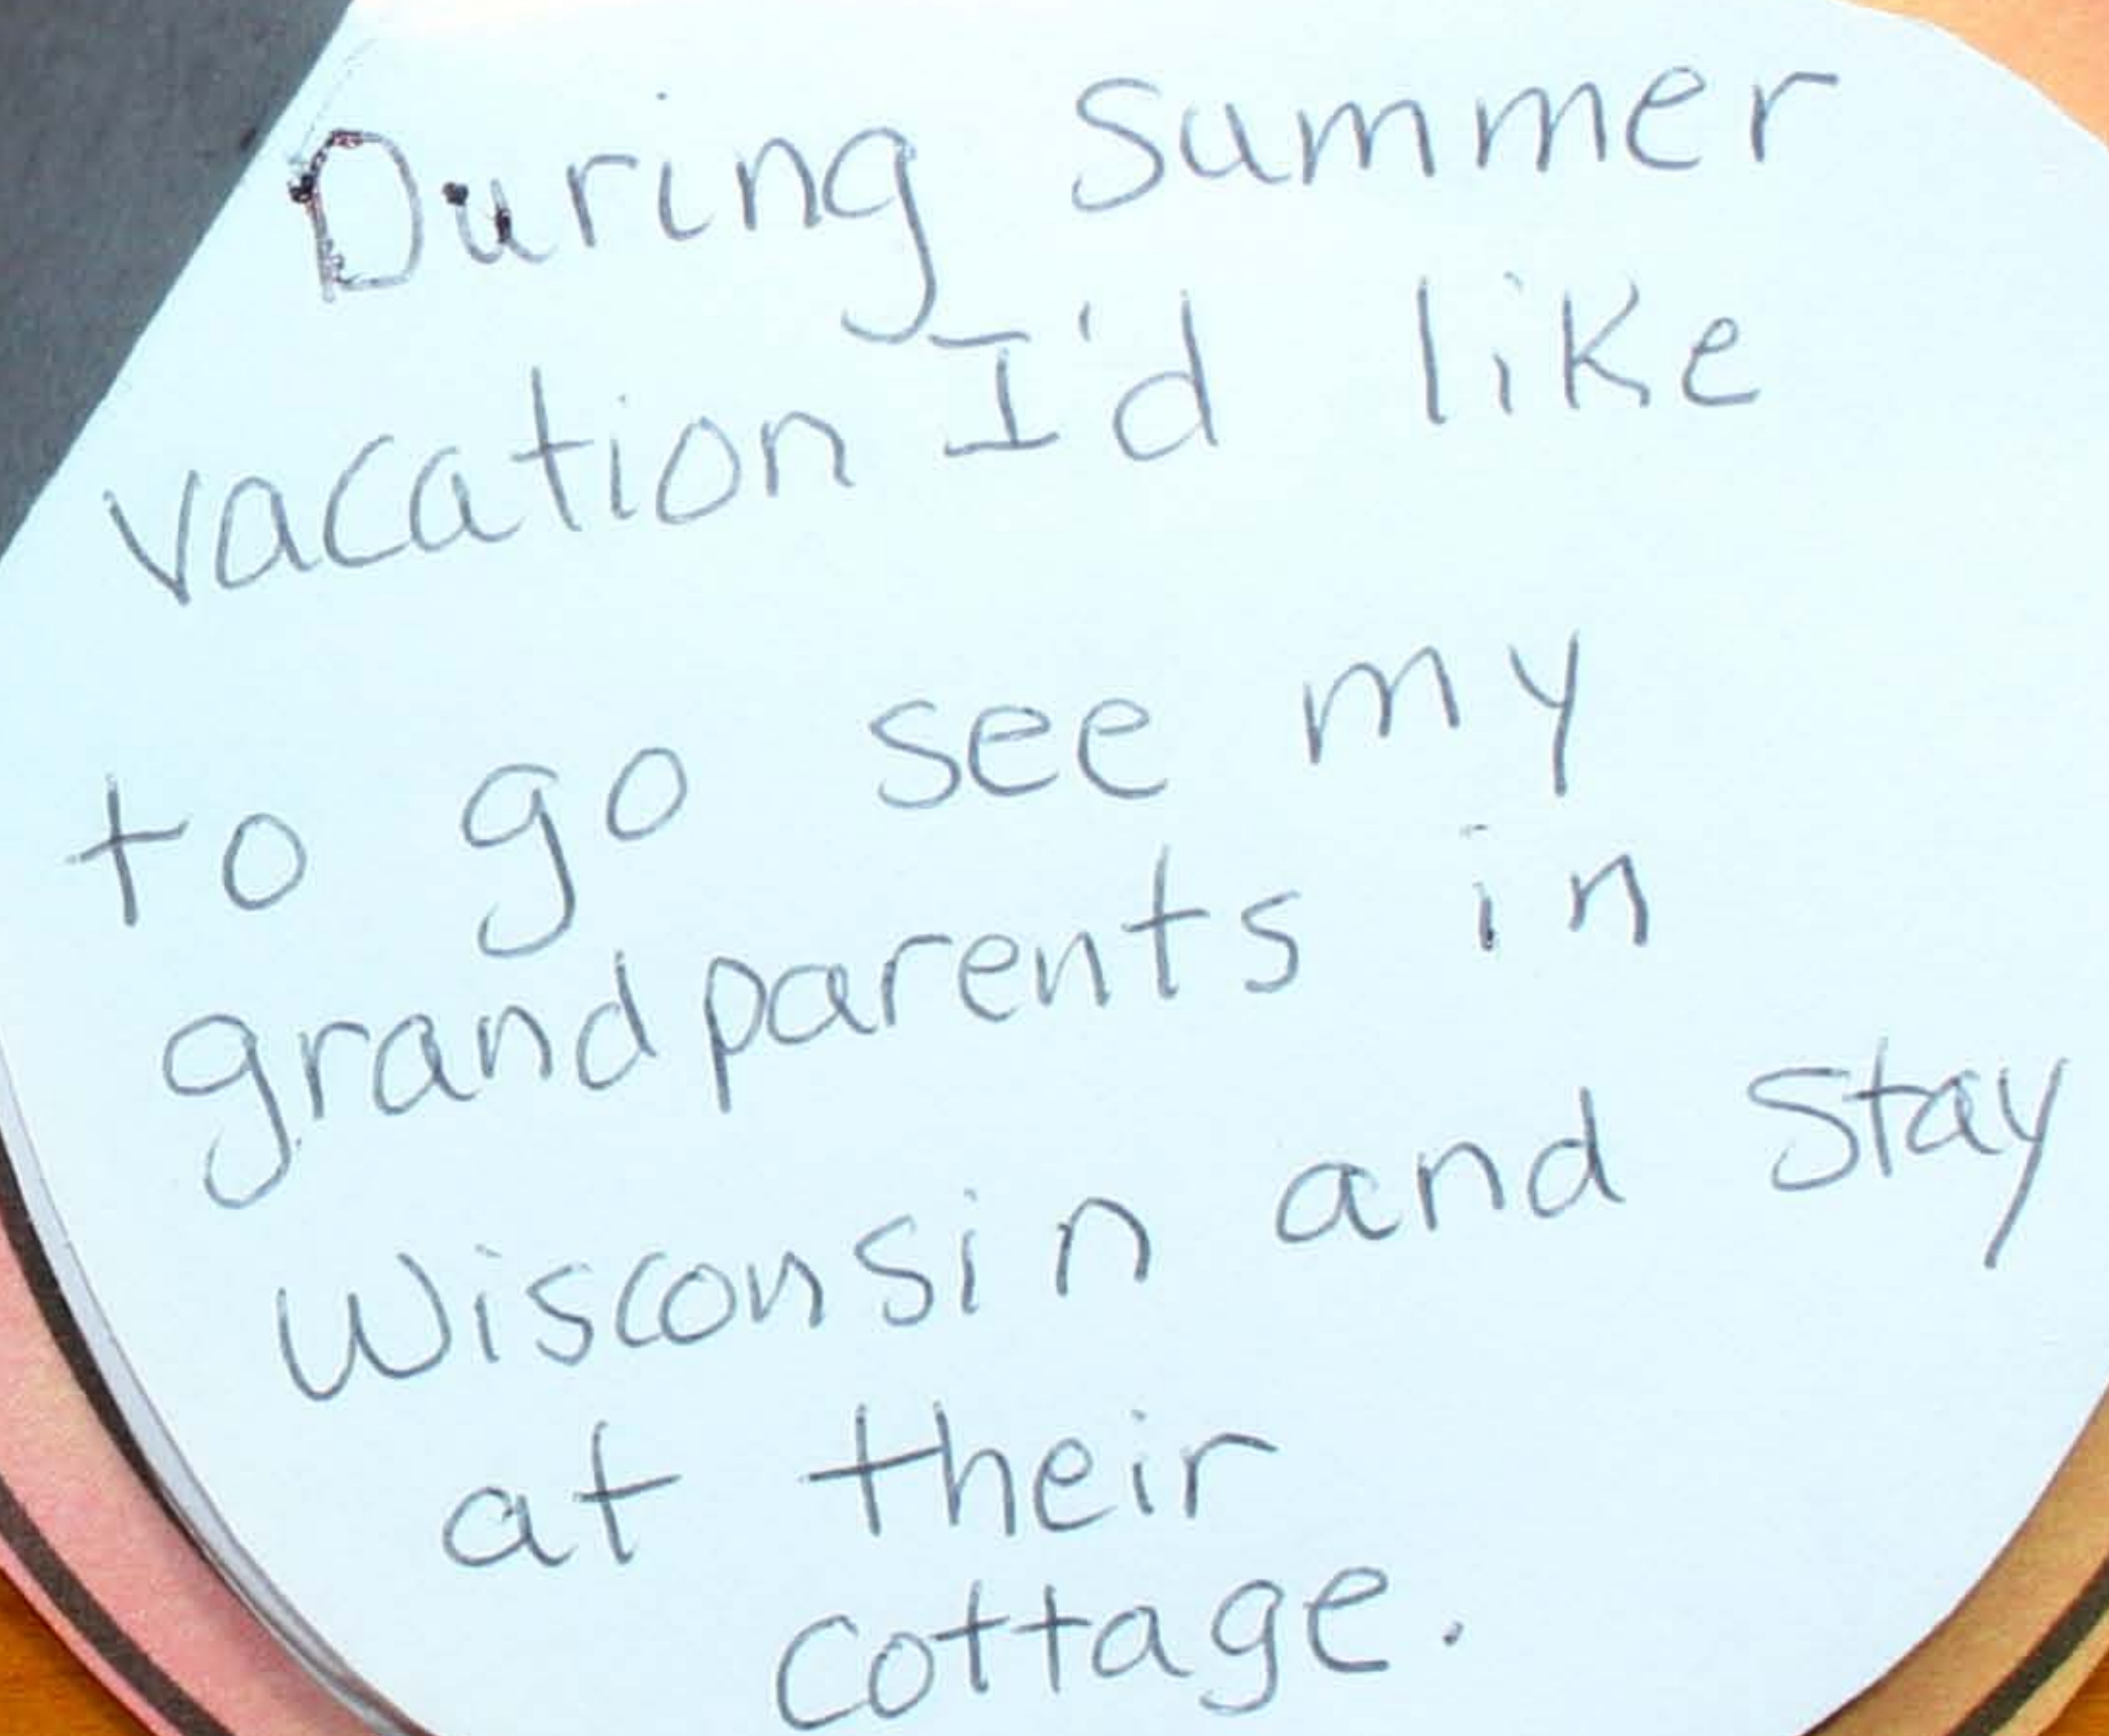 During summer
vacation I'd like
to go see my
grandparents in
Wisconsin and stay
at their
cottage.